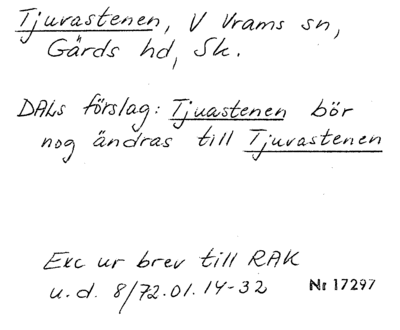 Tjuvastenen, V Vrams sn,
Gärds hd, Sk.
DALs förslag: Tjuastenen bör
nog ändras till Tjuvastenen
Exc ur brev till RAK
u.d. 8/72.01.14-32 Nr 17297